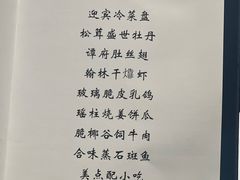 迎宾冷菜盘
松茸盛世牡丹
谭府肚丝翅
翰林干㸆虾
玻璃脆皮乳鸽
瑶柱烧姜饼瓜
脆椰谷饲牛肉
合味蒸石斑鱼
美点配小吃